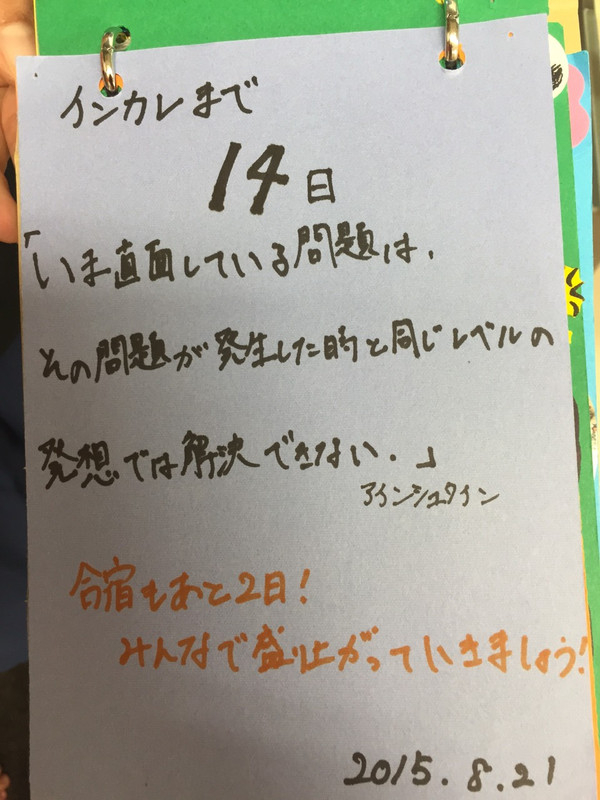 インカレまで
14日
「いま直面している問題は.
その問題が発生した時と同じレベルの
発想では解決できない.」
アインシュタイン
合宿もあと2日!
みんなで盛り上がっていきましょう!
2015.8.21